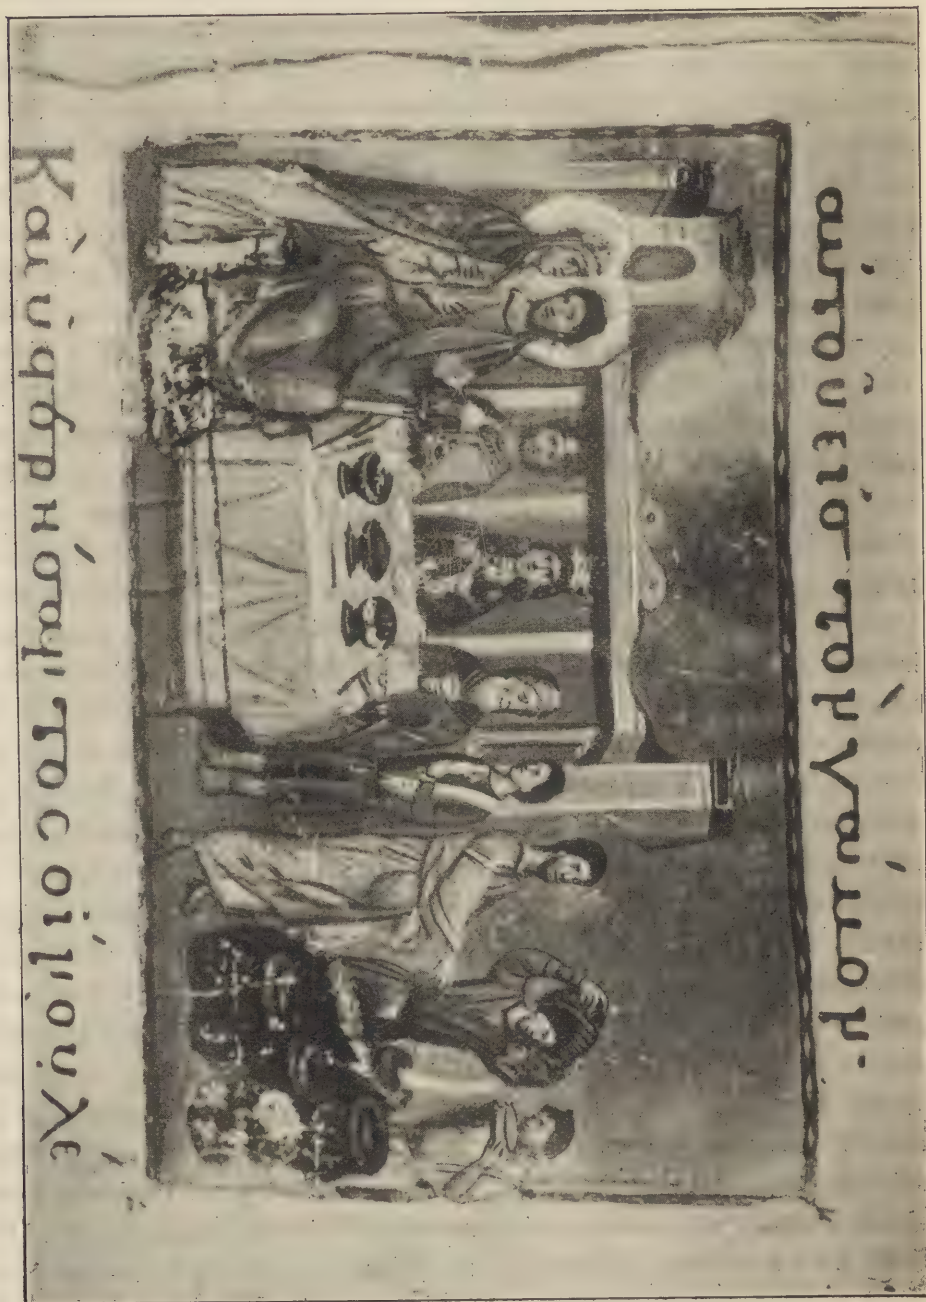 αὐτοῦ εἰς τὸν γάμον·
Καὶ ὑστερήσαντος οἴνου λέ